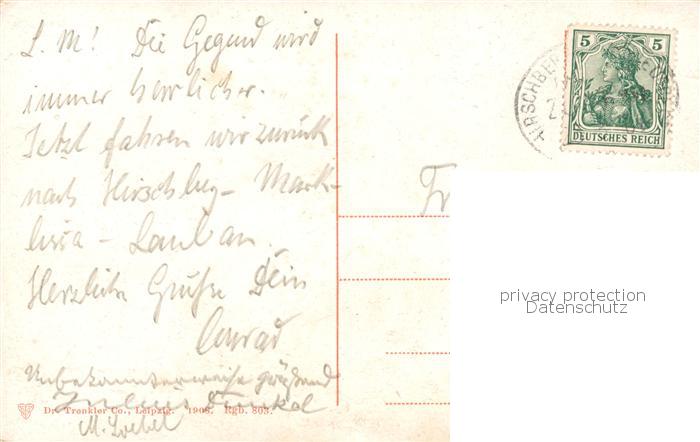 L. M! Die Gegend wird
immer herrlicher.
Jetzt fahren wir zurück
nach Hirschbg - Mark-
lissa - Lauban.
Herzliche Grüße Dein
Conrad
Unbekannterweise grüßend
M.
Dr. Trenkler Co., Leipzig. 1908. Rgb. 803.
5 5
DEUTSCHES REICH
HIRSCHBERG
Fr
privacy protection
Datenschutz